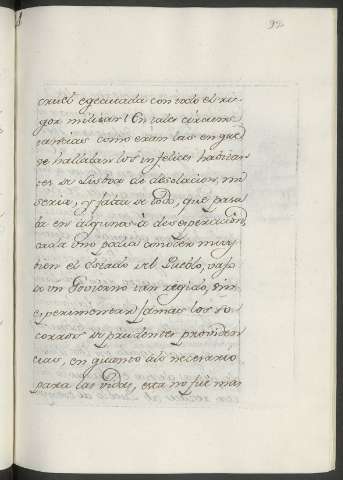 cruel egecutada con todo el ri-
gor militar! En tales circuns-
tancias como eran las en que
se hallaban los infelices havitan-
tes de Lisboa de desolacion, mi-
seria, y falta de todo, que pasa-
ba en algunos à desesperacion,
cada uno podia conocer muy
bien el Estado del Pueblo, vajo
de un Govierno tan rigido, sin
experimentar jamas los so-
corros de prudentes providen-
cias, en quanto à lo necesario
para las vidas, esta no fué mas